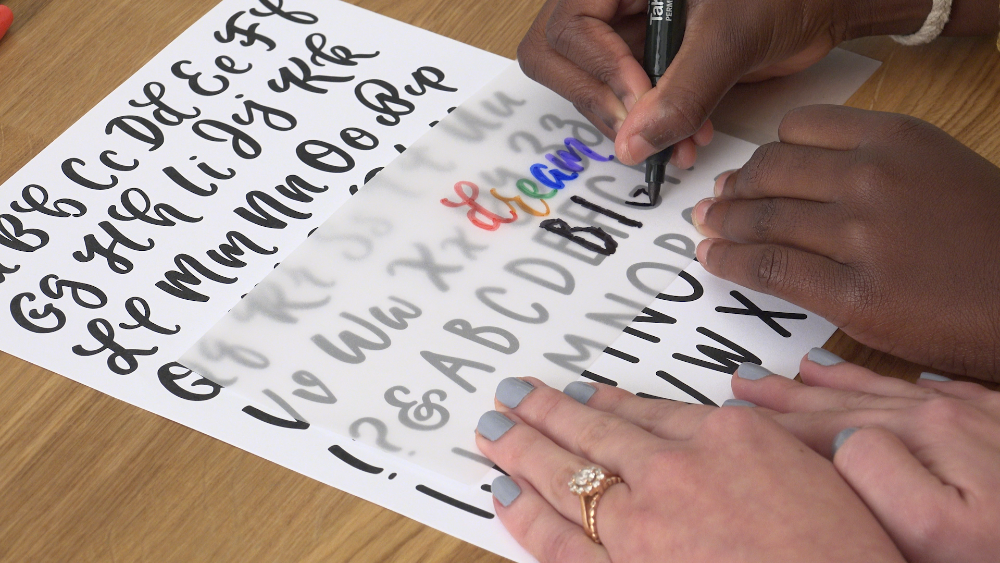 Bb Cc Dd Ee Ff
Gg Hh Ii Jj Kk
Ll Mm Nn Oo Pp
Qq Rr Ss Tt Uu
Vv Ww Xx Yy Zz
dream
BI
! ? & A B C D
M N O P
V W X